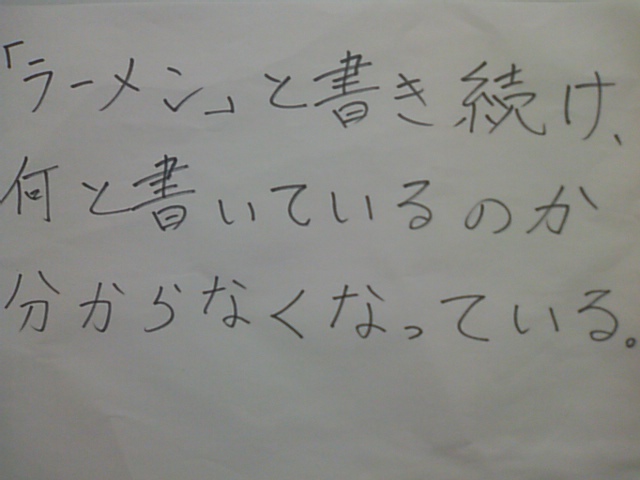 「ラーメン」と書き続け、
何と書いているのか
分からなくなっている。